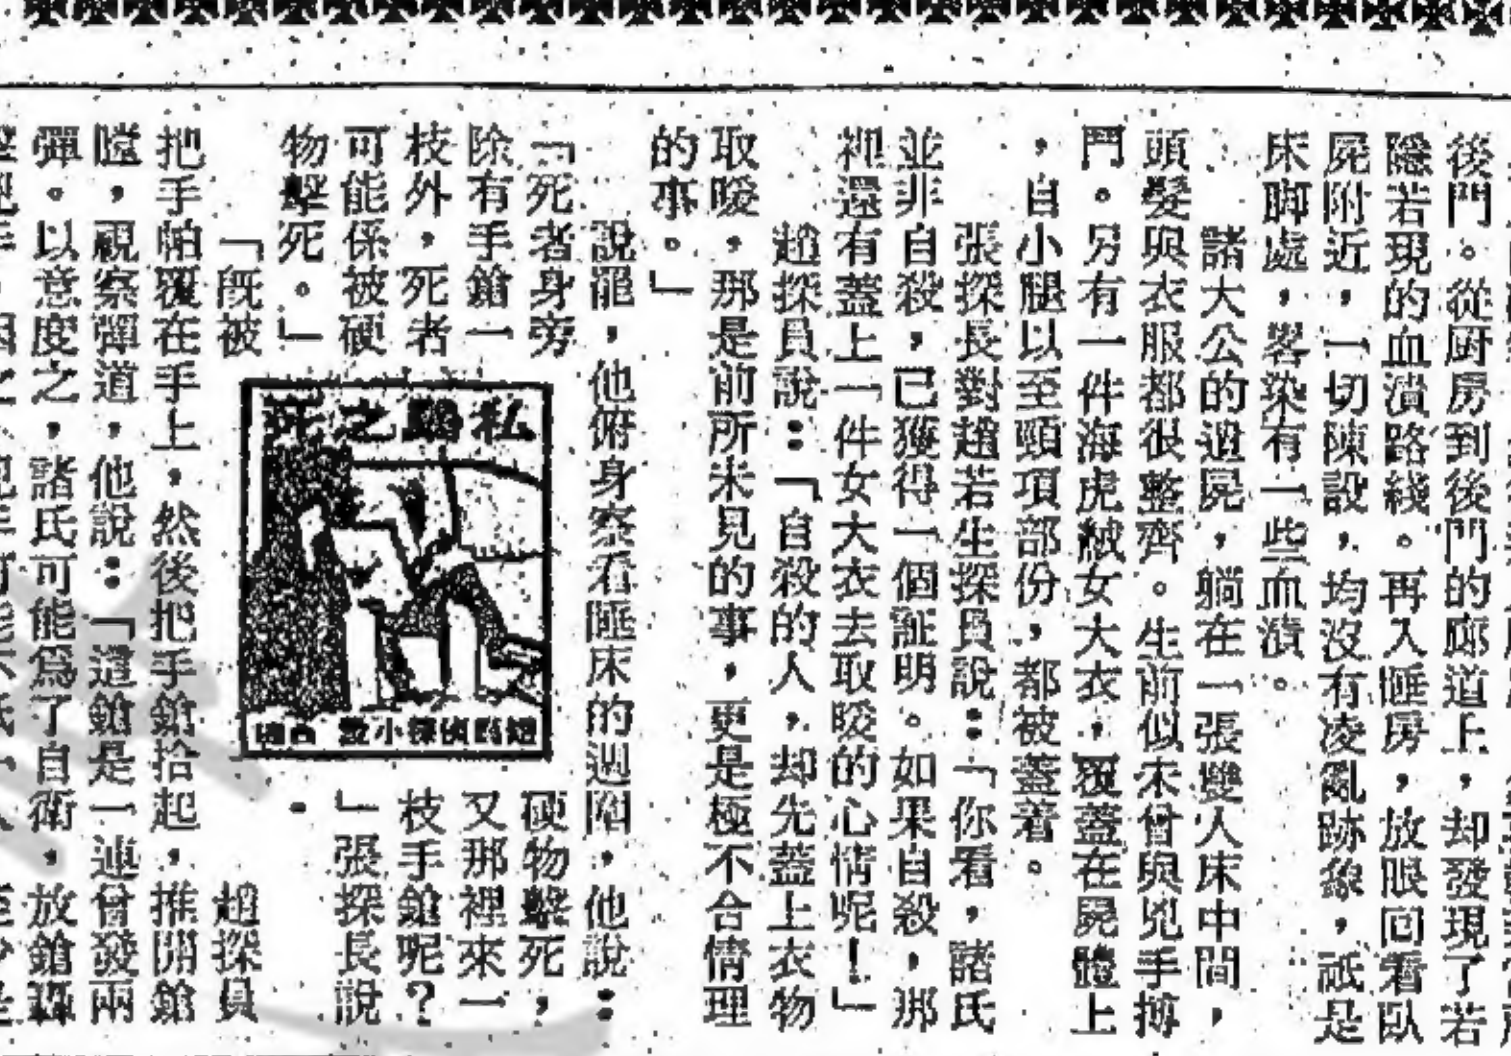 後門。從厨房到後門的廊道上，却發現了若
隱若現的血漬路綫。再入睡房，放眼回看臥
屍附近，一切陳設，均沒有凌亂跡象，祇是
床脚處，畧染有一些血漬。
諸大公的遺屍，躺在一張雙人床中間，
頭髮與衣服都很整齊。生前似未曾與兇手搏
鬥。另有一件海虎絨女大衣，覆蓋在屍體上
，自小腿以至頸項部份，都被蓋着。
張探長對趙若生探員說：「你看，諸氏
並非自殺，已獲得一個証明。如果自殺，那
裡還有蓋上一件女大衣去取暖的心情呢！」
趙探員說：「自殺的人，却先蓋上衣物
取暖，那是前所未見的事，更是極不合情理
的事。」
說罷，他俯身察看睡床的週陷，他說：
「死者身旁
除有手鎗一
枝外，死者
可能係被硬
物擊死。」
「旣被
硬物擊死，
又那裡來一
枝手鎗呢？
」張探長說
．
趙探員
私之死
短篇偵探小說
把手帕覆在手上，然後把手鎗拾起，推開鎗
膛，覗察彈道，他說：「這鎗是一連曾發兩
彈。以意度之，諸氏可能爲了自衛，放鎗